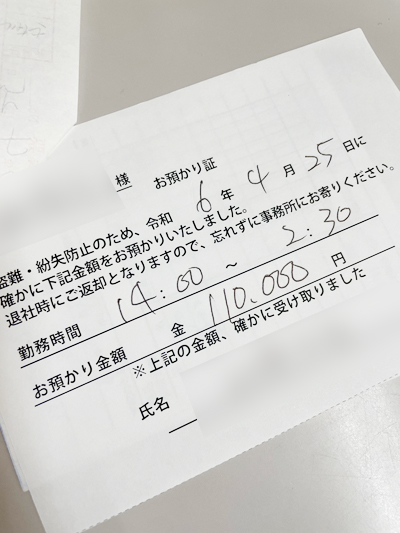 様 お預かり証
盗難・紛失防止のため、令和 6 年 4 月 25 日に
確かに下記金額をお預かりいたしました。
退社時にご返却となりますので、忘れずに事務所にお寄りください。
勤務時間 14:00 ~ 2:30
お預かり金額 金 110.000 円
※上記の金額、確かに受け取りました
氏名